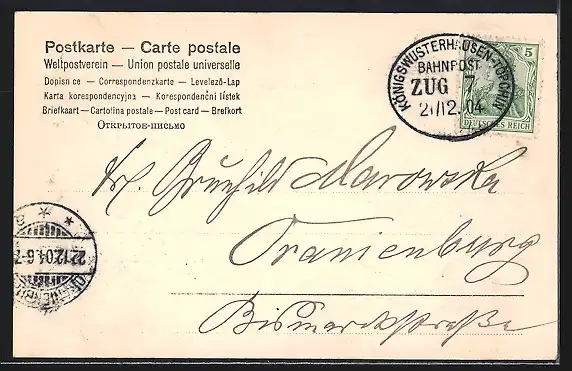 Postkarte — Carte postale
Weltpostverein — Union postale universelle
Dopisnice — Correspondenzkarte — Levelező-Lap
Karta korespondencyjna — Korespondenční lístek
Briefkaart — Cartolina postale — Post card — Brefkort
Открытое-письмо
KÖNIGSWUSTERHAUSEN-TÖPCHIN
BAHNPOST
ZUG 7
21/12.04
5
DEUTSCHES REICH
Marowska
Oranienburg
Bismarckstraße
22.12.04.6-7